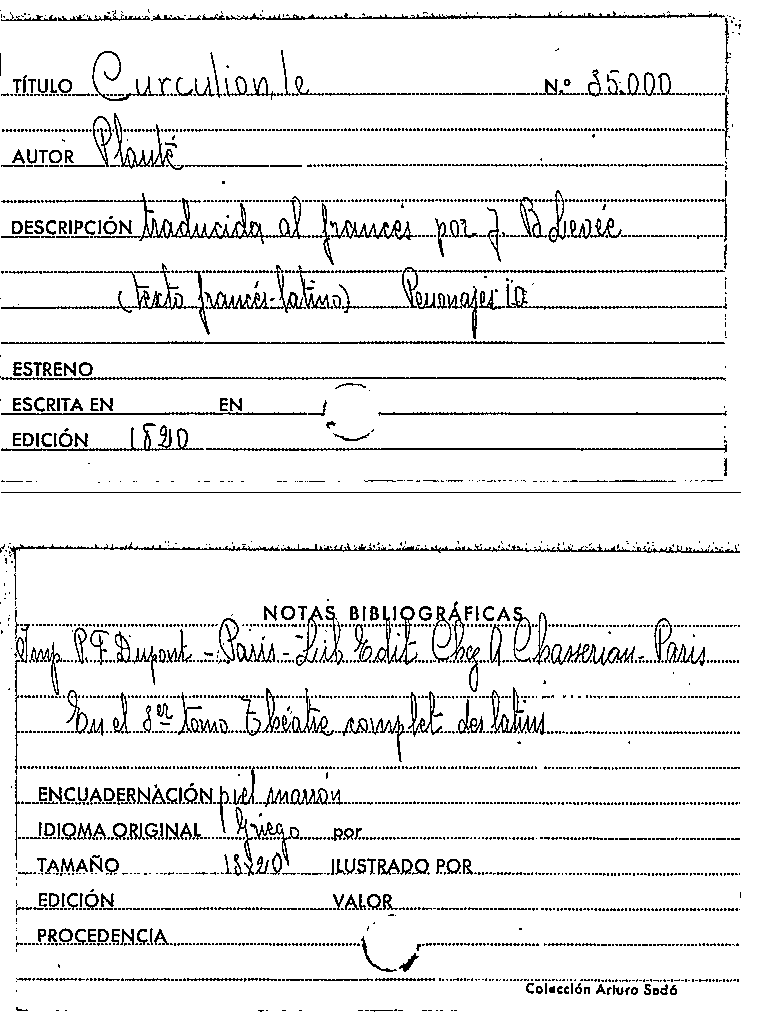 TÍTULO Curculion, le N.º 85.000
AUTOR Planté
DESCRIPCIÓN traducida al francés por J. B Levée
(texto francés-latino) Personajes 10
ESTRENO
ESCRITA EN EN
EDICIÓN 1820
NOTAS BIBLIOGRÁFICAS
Imp P. F Dupont - París - Lib Edit Chez A Chasserian - Paris
En el 3er tomo Théatre complet des latins
ENCUADERNACIÓN piel marrón
IDIOMA ORIGINAL Griego por
TAMAÑO ILUSTRADO POR
EDICIÓN VALOR
PROCEDENCIA
Colección Arturo Sedó